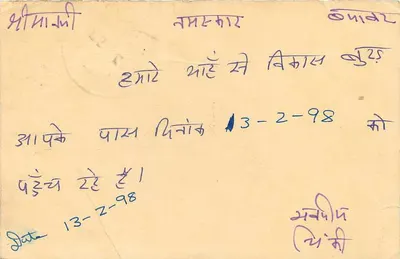 श्रीमानजी नमस्कार ब्यावर
हमारे यहाँ से विकास
आपके पास दिनांक 13-2-98 को
पहुँच रहे हैं।
Date 13-2-98